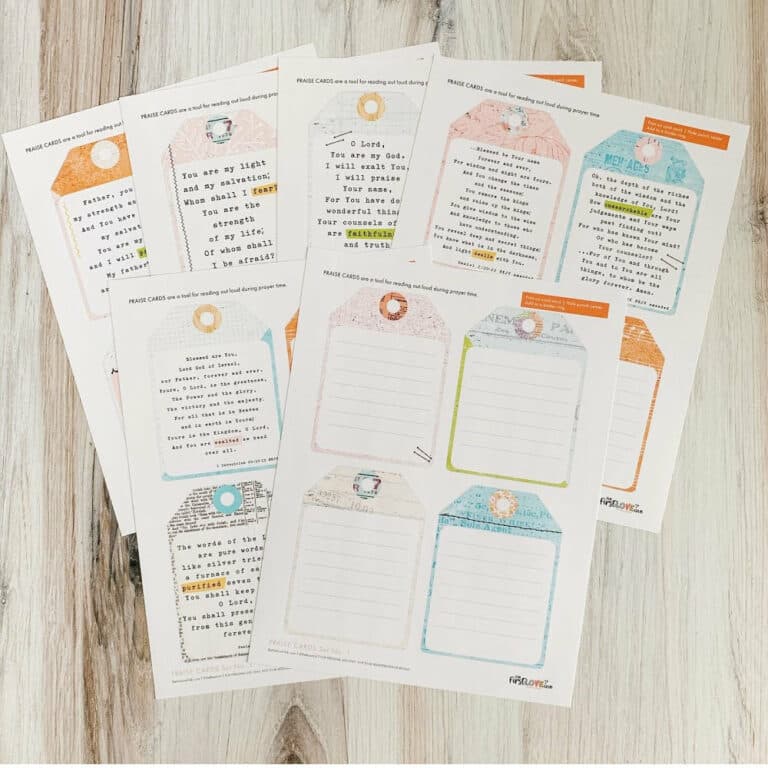 PRAISE CARDS are a tool for reading out loud during prayer time.
Father, you
my strength and
And You have
my salvation
You are my
and I will
My father
PRAISE CARDS are a tool for reading out loud
R 7
You are my light
and my salvation;
Whom shall I fear
You are the
strength
of my life;
Of whom shall
I be afraid?
PRAISE CARDS are a tool for reading out loud
O Lord,
You are my God.
I will exalt You,
I will praise
Your name,
For You have done
wonderful things
Your counsels of
are faithfulness
and truth
PRAISE CARDS are a tool for reading out loud during prayer time.
Print on card stock | Hole punch center
Add to a binder ring
...Blessed is Your name
forever and ever,
For wisdom and might are Yours.
And You change the times
and the seasons;
You remove kings
and raise up kings;
You give wisdom to the wise
And knowledge to those who
have understanding.
You reveal deep and secret things;
You know what is in the darkness,
And light dwells with You.
Daniel 2:20-22
MENAGES
Oh, the depth of the riches
both of the wisdom and the
knowledge of You, Lord!
How unsearchable are Your
judgments and Your ways
past finding out!
For who has known Your mind?
Or who has become
Your counselor?
...For of You and through
You and to You are all
things, to whom be the
glory forever. Amen.
the FirstLOVE
PRAISE CARDS are a tool for reading out loud during prayer time.
Blessed are You,
Lord God of Israel,
our Father, forever and ever.
Yours, O Lord, is the greatness,
The Power and the glory,
The victory and the majesty;
For all that is in Heaven
and in earth is Yours;
Yours is the Kingdom, O Lord,
And You are exalted as head
over all.
The words of the L
are pure words
like silver tried
a furnace of ea
purified seven
You shall keep
O Lord,
You shall prese
from this gen
forever
PRAISE CARDS Set No.
PRAISE CARDS are a tool for reading out loud during prayer time.
Print on card stock | Hole punch center
Add to a binder ring
R 7
PRAISE CARDS Set No. 1
the FirstLOVE